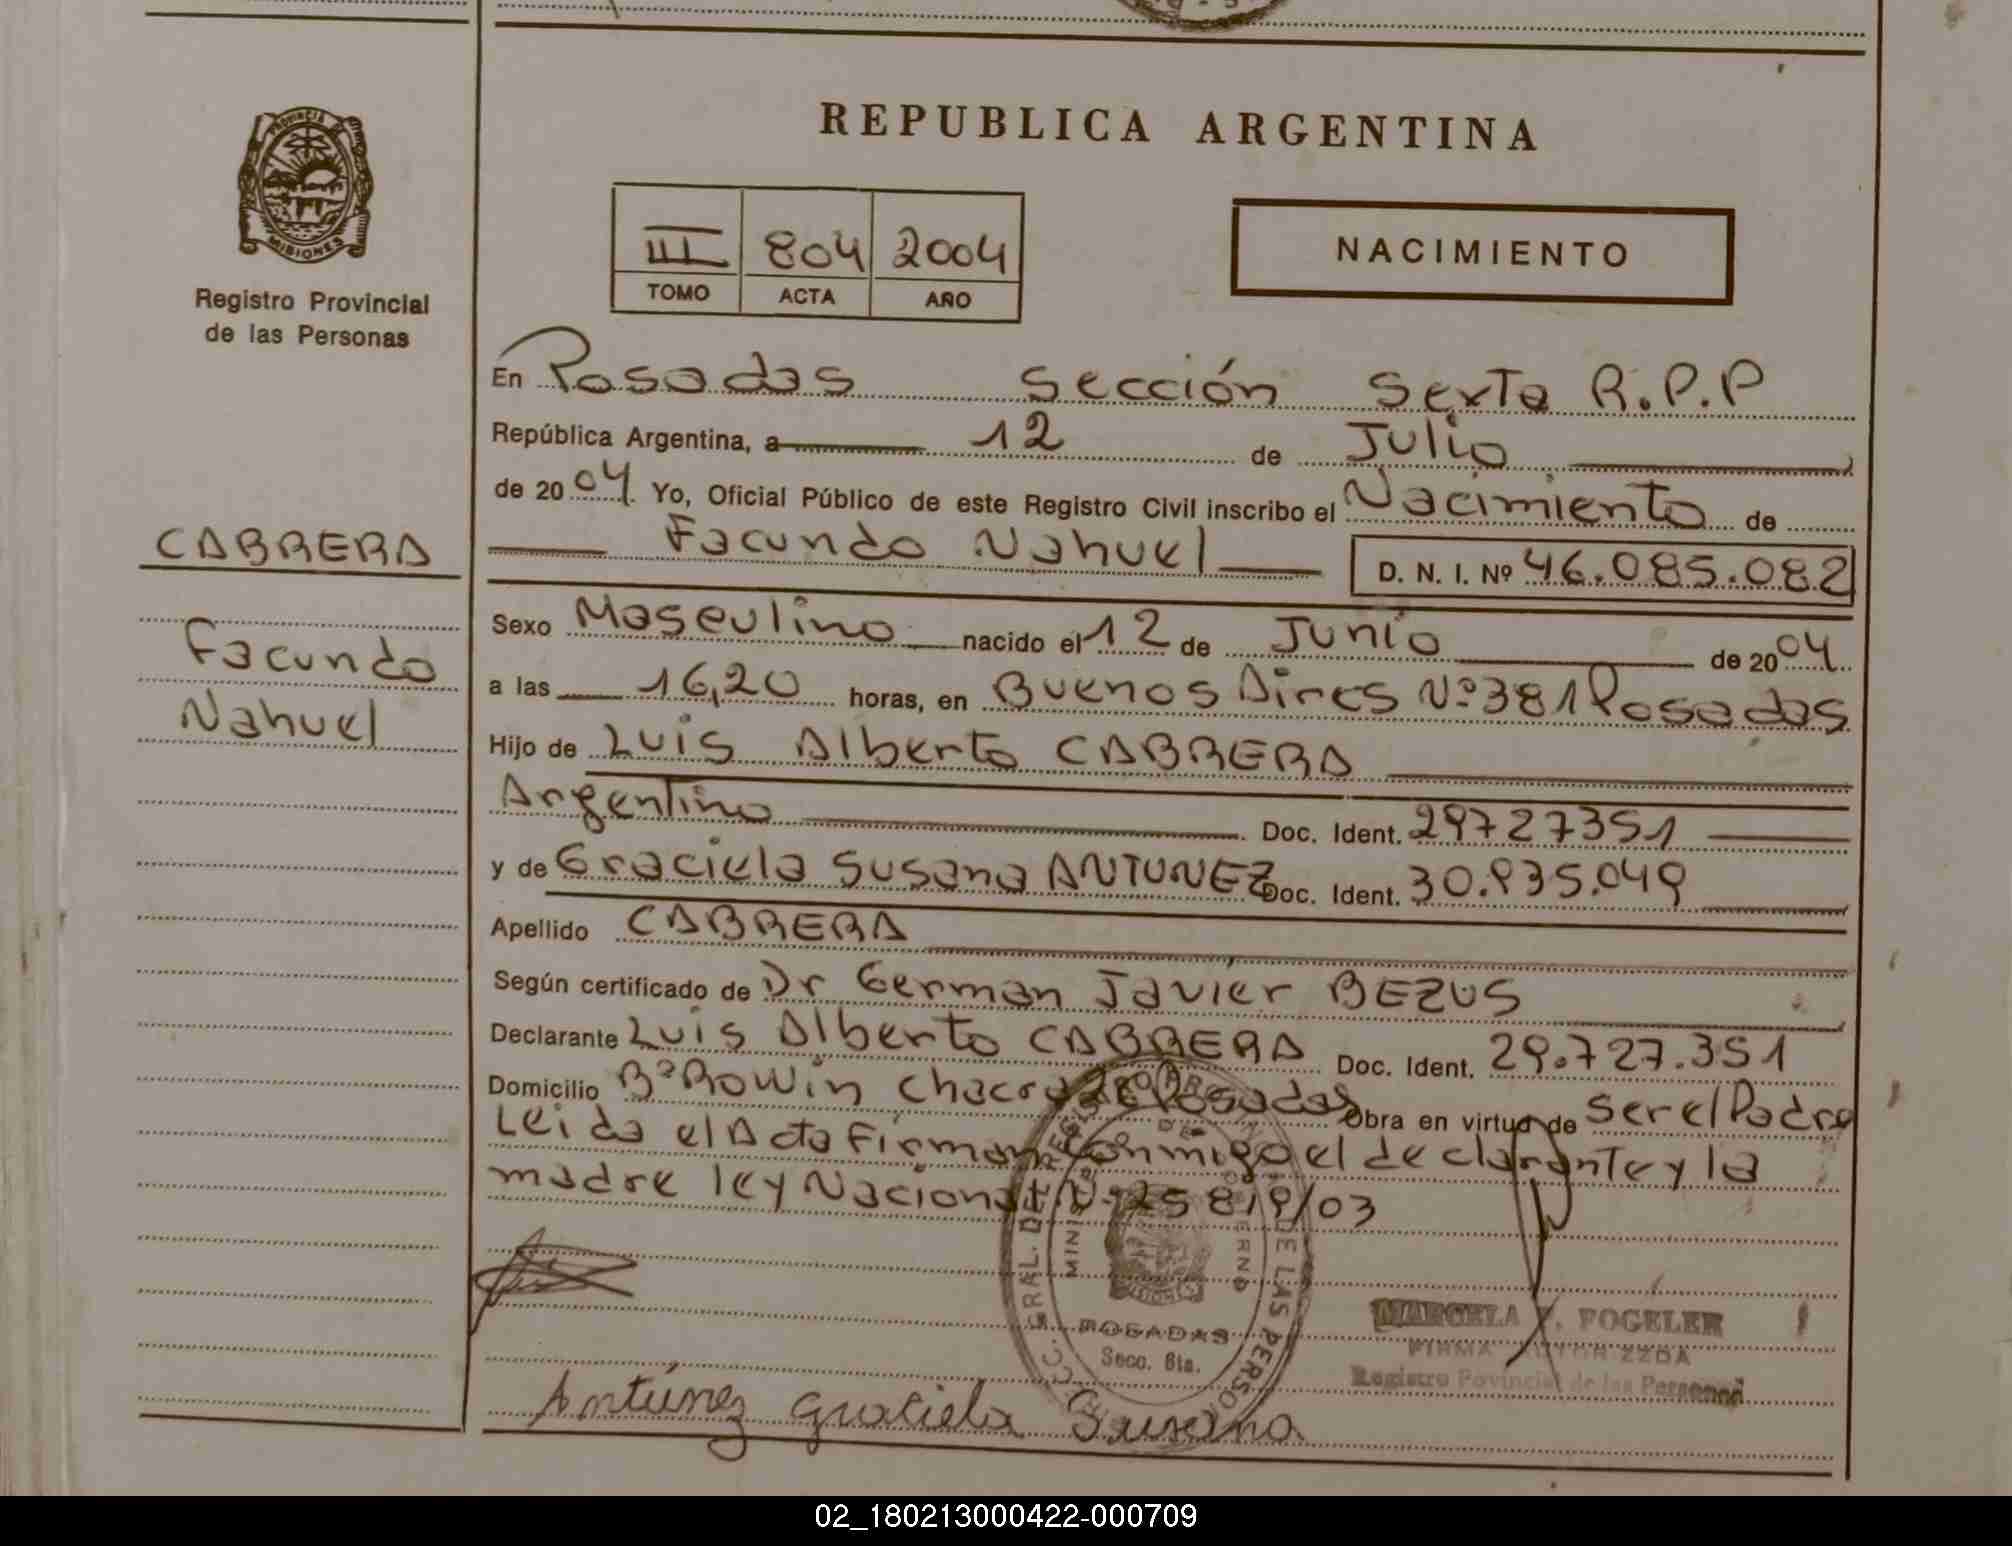 REPUBLICA ARGENTINA
PROVINCIA DE
MISIONES
Registro Provincial
de las Personas
III 804 2004
TOMO ACTA AÑO
NACIMIENTO
En Posadas Sección Sexta R.P.P
República Argentina, a 12 de Julio
de 2004 Yo, Oficial Público de este Registro Civil inscribo el Nacimiento de
Facundo Nahuel D. N. I. Nº 46.085.082
CABRERA
Facundo
Nahuel
Sexo Masculino nacido el 12 de Junio de 2004
a las 16,20 horas, en Buenos Aires Nº 381 Posadas
Hijo de Luis Alberto CABRERA
Argentino Doc. Ident. 29727351
y de Graciela Susana ANTUNEZ Doc. Ident. 30.935.049
Apellido CABRERA
Según certificado de Dr German Javier BEZUS
Declarante Luis Alberto CABRERA Doc. Ident. 29.727.351
Domicilio Bº Rowin Chacra Posadas Obra en virtud de ser el Padre
Leida el Acta Firman conmigo el declarante y la
madre ley Nacional Nº 25819/03
POSADAS
Secc. 6ta.
MARCELA FOGELER
FIRMA AUTORIZZDA
Registro Povincial de las Personas
Antúnez Graciela Susana
02_180213000422-000709